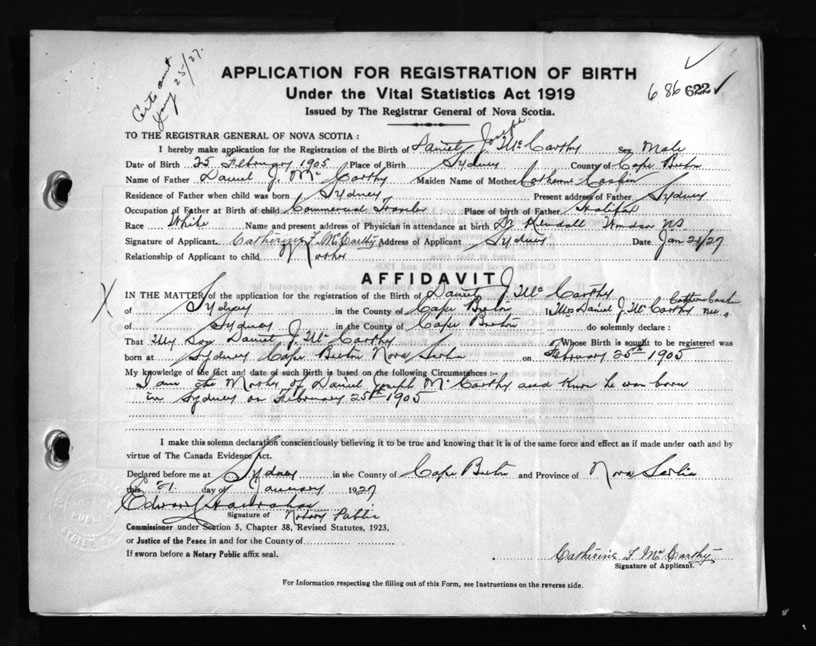 Jany 25/27.
APPLICATION FOR REGISTRATION OF BIRTH
686 622
Under the Vital Statistics Act 1919
Issued by The Registrar General of Nova Scotia.
TO THE REGISTRAR GENERAL OF NOVA SCOTIA :
I hereby make application for the Registration of the Birth of Daniel Joseph McCarthy Sex Male
Date of Birth 25 February 1905 Place of Birth Sydney County of Cape Breton
Name of Father Daniel J. McCarthy Maiden Name of Mother Catherine
Residence of Father when child was born Sydney Present address of Father Sydney
Occupation of Father at Birth of child Commercial Traveler Place of birth of Father Halifax
Race White Name and present address of Physician in attendance at birth Dr Kendall Windsor NS
Signature of Applicant Catherine F. McCarthy Address of Applicant Sydney Date Jan 21/27
Relationship of Applicant to child Mother
AFFIDAVIT
IN THE MATTER of the application for the registration of the Birth of Daniel J. McCarthy
of Sydney in the County of Cape Breton I Mrs Daniel J. McCarthy nee Catherine
of Sydney in the County of Cape Breton do solemnly declare :
That My Son Daniel J. McCarthy Whose Birth is sought to be registered was
born at Sydney Cape Breton Nova Scotia on February 25th 1905
My knowledge of the fact and date of such Birth is based on the following Circumstances :-
I am the Mother of Daniel Joseph McCarthy and know he was born
in Sydney on February 25th 1905
I make this solemn declaration conscientiously believing it to be true and knowing that it is of the same force and effect as if made under oath and by
virtue of The Canada Evidence Act.
Declared before me at Sydney in the County of Cape Breton and Province of Nova Scotia
this 21 day of January 1927
Edward
Signature of Notary Public
Commissioner under Section 5, Chapter 38, Revised Statutes, 1923,
or Justice of the Peace in and for the County of
If sworn before a Notary Public affix seal.
Catherine F. McCarthy
Signature of Applicant.
For Information respecting the filling out of this Form, see Instructions on the reverse side.